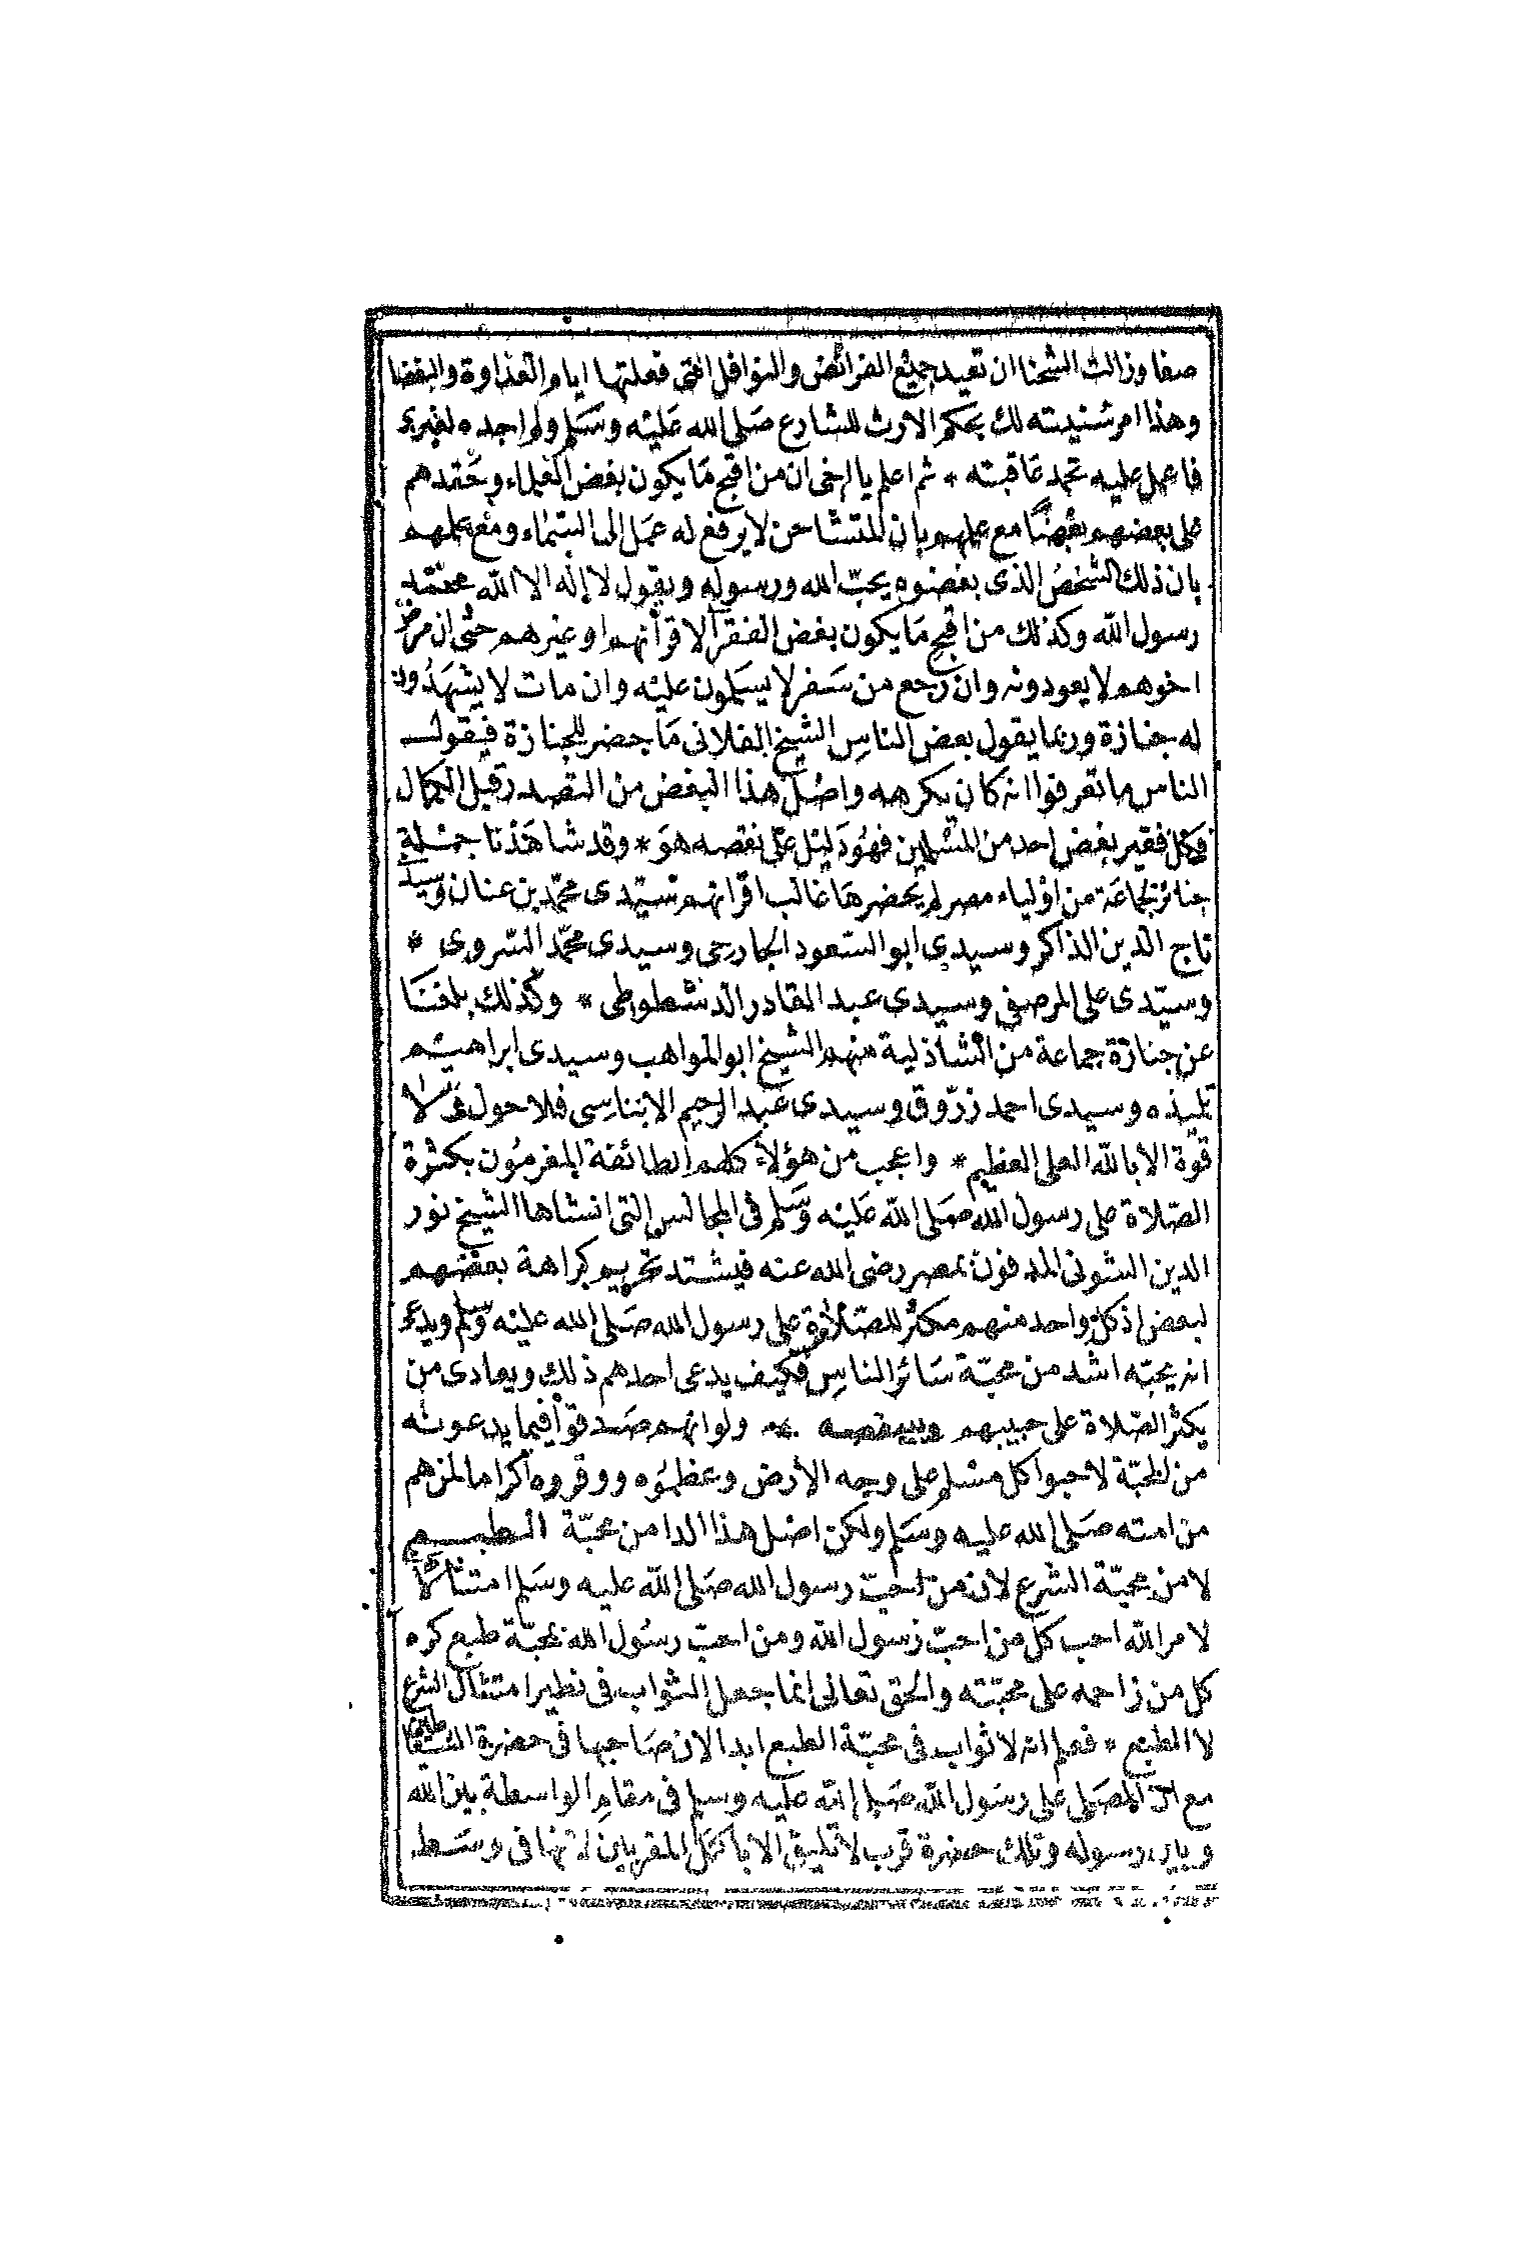 صفا وزالت الشحنا ان تعيد جميع الفرائض والنوافل التى فعلتها ايام العداوة والبغضا
وهذا امر شنيته لك بحكم الارث للشارع صَلى الله عَليْه وسَلم ولم اجده لغيرى
فاعمل عليه تحمد عَاقبته * ثم اعلم يا اخى ان من اقبح مَا يكون بغض العلماء وحقدهم
على بعضهم بعضًا مع علمهم بان المتشاحن لا يرفع له عمَل الى السَماء ومع علمهم
بان ذلك الشخص الذى بغضوه يحبّ الله ورسوله ويقول لا إله الا الله محمّد
رسول الله وكذلك من اقبح مَا يكون بغض الفقرآ لاقرأنهم او غيرهم حتى ان مرض
اخوهم لا يعودونه وان رجع من سَفر لا يسَلمون عليْه وان مات لا يشهدُون
له جنازة وربما يقول بعض الناسِ الشيخ الفلانى مَا حضر للجنازة فيقول
الناس ما تعرفوا انه كان يكرهه واصْل هذا البغض من التصدر قبل الكمال
فكل فقير بغض احد من المسْلمين فهُوَ دَليْل على نقصه هوَ * وقد شاهَدْنا جمْلة
جنائز لجماعَة من اوْلياء مصر لم يحضرهَا غالب اقرانهم كسيّدى محمّد بن عنان وسيدى
تاج الدين الذاكر وسيدى ابو السّعود الجارحى وسيدى محمّد السّروى *
وسيّدى على المرصفى وسيدى عبد القادر الدشطوطى * وكذلك بلغنَا
عن جنازة جماعة من الشاذلية منهم الشيخ ابو المواهب وسيدى ابراهيْم
تلميذه وسيدى احمد زرّوق وسيدى عَبد الرحيم الابناسِى فلا حول وَلا
قوّة الا بالله العلى العظيم * واعجب من هؤلاء كلهم الطائفة المغرمُون بكثرة
الصّلاة على رسول الله صَلى الله عَليْه وسَلم فى المجالس التى انشاها الشيخ نور
الدين الشونى المدفون بمصر رضى الله عنه فيشتد تحريم كراهة بعضهم
لبعض اذ كل واحد منهم مكثر للصّلاة على رسول الله صَلى الله عليْه وسَلم ويدعى
انه يحبّه اشد من محبّة سَائر الناسِ فكيف يدعى احدهم ذلك ويعادى من
يكثر الصّلاة على حبيبهم ويبغضه * ولو انهم صَدقوْا فيما يدعونه
من المحبّة لاحبوا كل مسْلم على وجه الأرض وعظمُوه ووقروه اكراما لمن هم
من امته صَلى الله عليه وسَلم ولكن اصْل هذا الدا من محبّة الطبع
لا من محبّة الشرع لان من احبّ رسول الله صَلى الله عليه وسَلم امتثالا
لامر الله احب كل من احبّ رسول الله ومن احبّ رسُول الله بمحبّة طبع كره
كل من زاحمه على محبّته والحق تعالى انما جعل الثواب فى نظير امتثال الشرع
لا الطبع * فعلم انه لا ثواب فى محبّة الطبع ابدا لان صَاحبها فى حضرة الشيطان
مع ان المصَلى على رسَول الله صَلى الله عَليه وسلم فى مقام الواسطة بين الله
وبين رسوله وتلك حضرة قرب لا تليق الا باكمل المقربين لانها فى وسَط